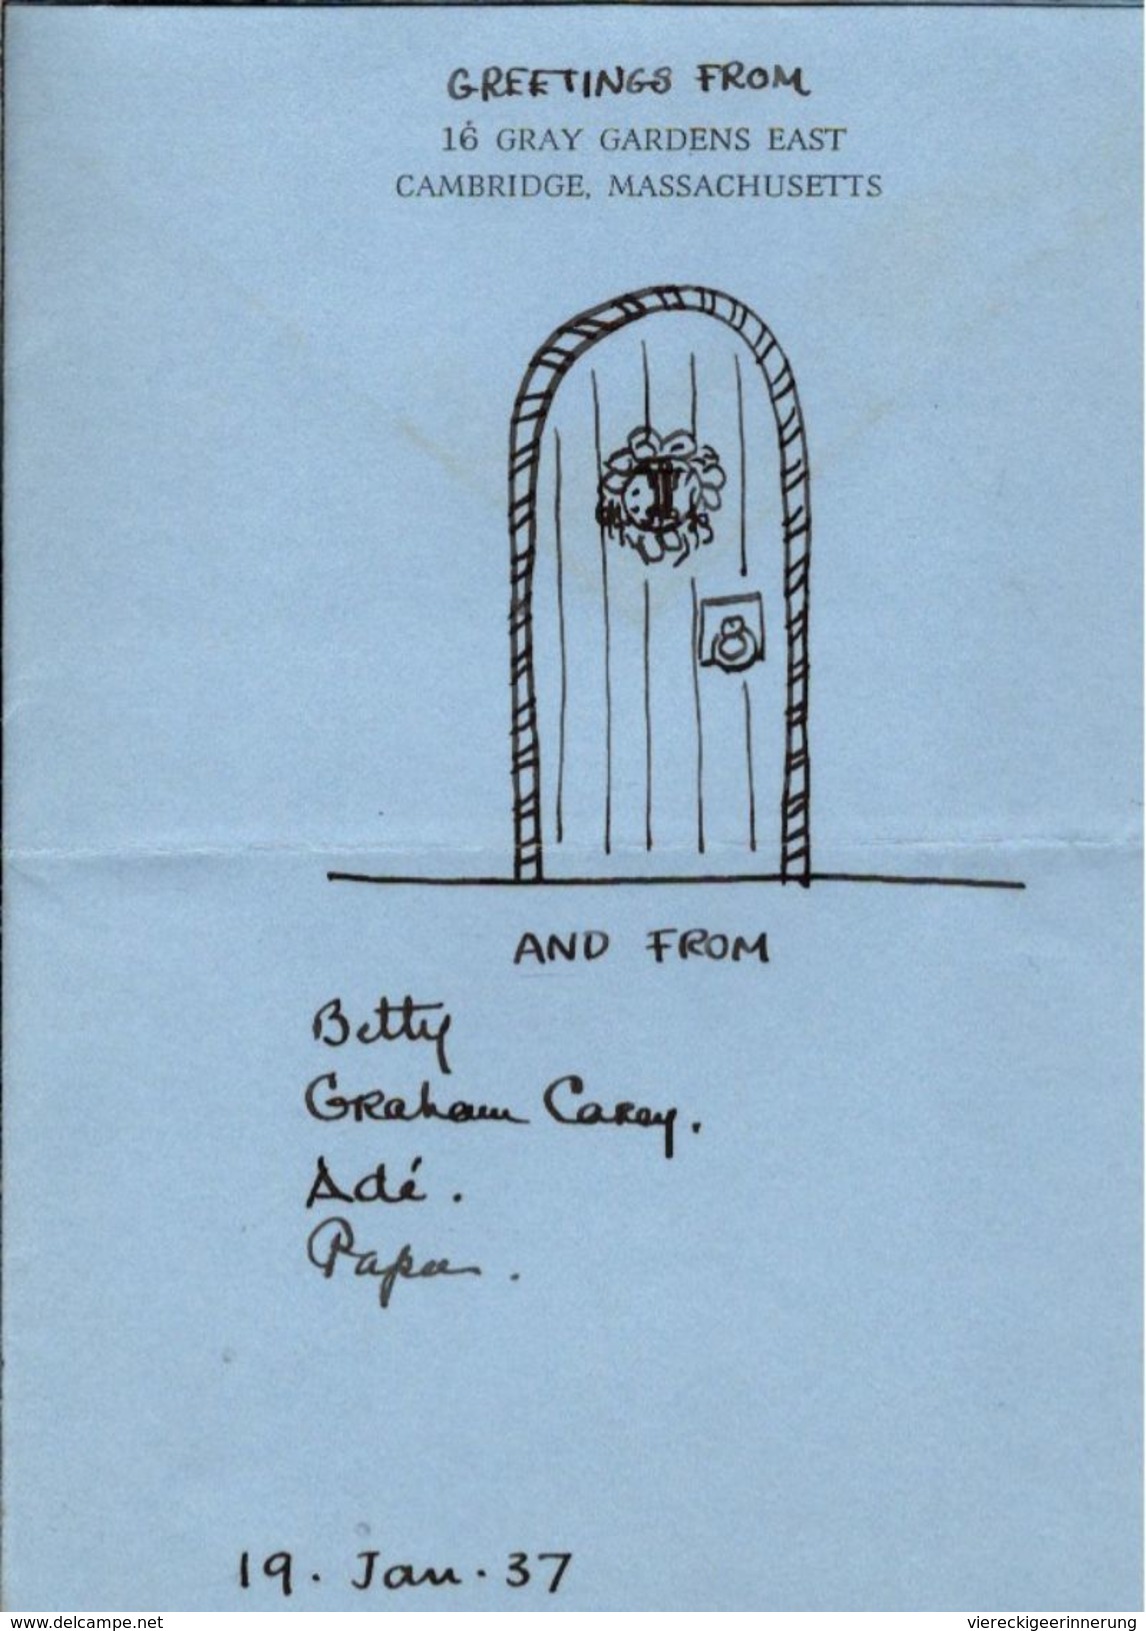 GREETINGS FROM
16 GRAY GARDENS EAST
CAMBRIDGE, MASSACHUSETTS
AND FROM
Betty
Graham Carey.
Adé.
Papa.
19. Jan. 37
www.delcampe.net
viereckigeerinnerung